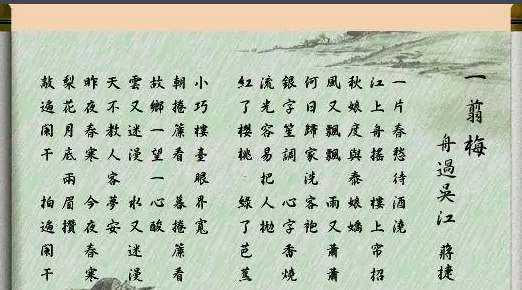 一翦梅
舟過吳江 蔣捷
一片春愁待酒澆
江上舟搖 樓上帘招
秋娘度與泰娘嬌
風又飄飄 雨又蕭蕭
何日歸家洗客袍
銀字笙調 心字香燒
流光容易把人拋
紅了櫻桃 綠了芭蕉
小巧樓臺眼界寬
朝捲簾看 暮捲簾看
故鄉一望一心酸
雲又迷漫 水又迷漫
天不教人客夢安
昨夜春寒 今夜春寒
梨花月底兩眉攢
敲遍闌干 拍遍闌干